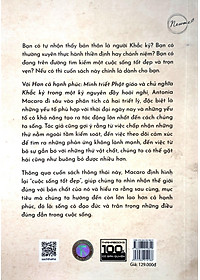 Bạn có tự nhận thấy bản thân là người Khắc kỷ? Bạn có
đang thường xuyên thực hành thiền định hay chánh niệm? Bạn có
đang trên đường tìm kiếm một cuộc sống tốt đẹp và trọn
vẹn? Nếu có thì cuốn sách này chính là dành cho bạn.
Với Hơn cả hạnh phúc: Minh triết Phật giáo và chủ nghĩa
Khắc kỷ trong một kỷ nguyên đầy hoài nghi, Antonia
Macaro đi sâu vào phân tích cả hai triết lý, đặc biệt là
những yếu tố phù hợp với thời đại ngày nay và những yếu
tố có khả năng tạo ra tác động lớn nhất đến cách chúng
ta sống. Tác giả cũng gợi ý rằng từ việc chấp nhận những
thứ nằm ngoài tầm kiểm soát, đến việc theo dõi cảm xúc
để tìm ra những phản ứng không lành mạnh, đến việc từ
bỏ sự gắn bó với những thứ vật chất, chúng ta có thể gặt
hái cũng như buông bỏ được nhiều hơn.
Thông qua cuốn sách thông thái này, Macaro định hình
lại "cuộc sống tốt đẹp", giúp chúng ta nhìn nhận thế giới
đúng với bản chất của nó và hiểu ra rằng sau cùng, mục
tiêu mà chúng ta hướng đến còn lớn lao hơn cả hạnh
phúc, đó là: sống có đạo đức và trân trọng những điều
đúng đắn trong cuộc sống.
100%
Giá: 129.000đ